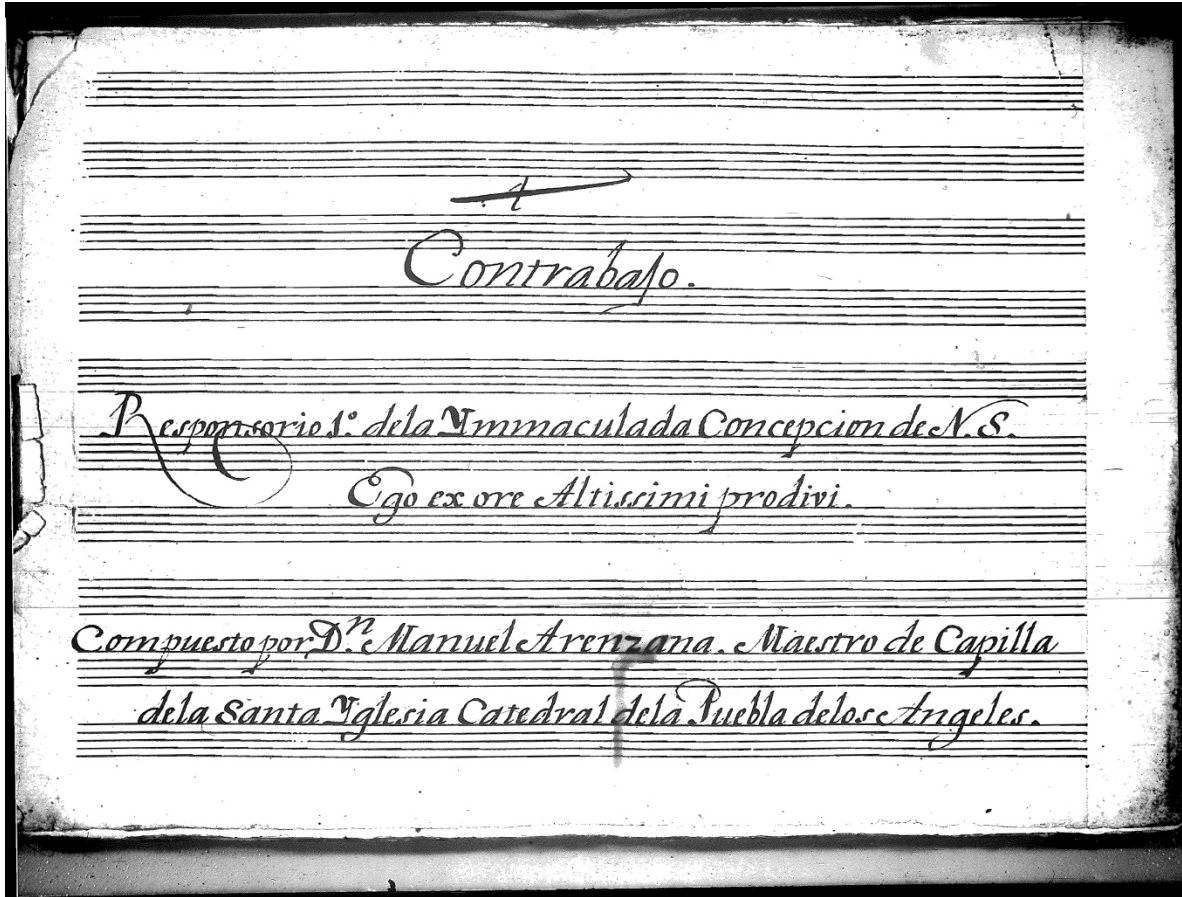 Contrabajo.
Responsorio 1.º dela Ymmaculada Concepcion de N.S.
Ego ex ore Altissimi prodivi.
Compuesto por D.n Manuel Arenzana. Maestro de Capilla
dela Santa Yglesia Catedral dela Puebla delos Angeles.